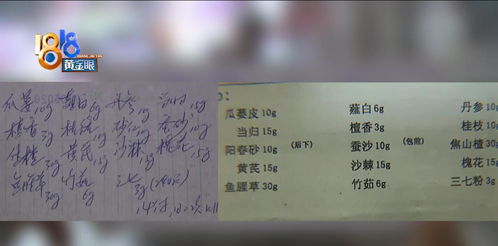 1818
黄金眼
瓜蒌 10g 薤白 6g 丹参 10g 当归 15g
檀香 3g 桂枝 10g 砂仁 10g 蚕沙 10g
焦楂 30g 黄芪 15g 沙棘 15g 槐花 15g
鱼腥草 30g 竹茹 6g 三七 3g
瓜蒌皮 10g 薤白 6g 丹参 10g
当归 15g (后下) 檀香 3g 桂枝 10g
阳春砂 10g 蚕沙 10g (包煎) 焦山楂 30g
黄芪 15g 沙棘 15g 槐花 15g
鱼腥草 30g 竹茹 6g 三七粉 3g